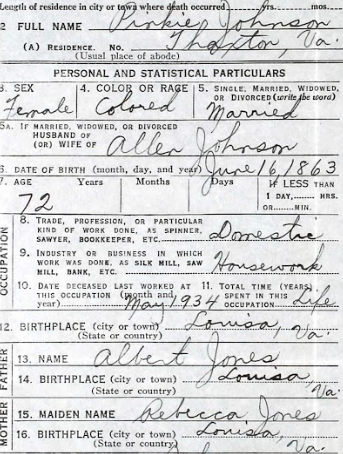 Length of residence in city or town where death occurred yrs. mos.
2 FULL NAME Pinkie Johnson
(A) RESIDENCE. No. Thaxton, Va.
(Usual place of abode)
PERSONAL AND STATISTICAL PARTICULARS
3. SEX 4. COLOR OR RACE 5. SINGLE, MARRIED, WIDOWED, OR DIVORCED (write the word)
Female Colored Married
5A. IF MARRIED, WIDOWED, OR DIVORCED
HUSBAND OF
(OR) WIFE OF Allen Johnson
6. DATE OF BIRTH (month, day, and year) June 16, 1863
7. AGE Years Months Days IF LESS THAN
1 DAY, HRS.
72 OR MIN.
OCCUPATION
8. TRADE, PROFESSION, OR PARTICULAR
KIND OF WORK DONE, AS SPINNER,
SAWYER, BOOKKEEPER, ETC. Domestic
9. INDUSTRY OR BUSINESS IN WHICH
WORK WAS DONE, AS SILK MILL, SAW
MILL, BANK, ETC. Housework
10. DATE DECEASED LAST WORKED AT 11. TOTAL TIME (YEARS)
THIS OCCUPATION (month and SPENT IN THIS
year) May, 1934 OCCUPATION Life
12. BIRTHPLACE (city or town) Louisa, Va.
(State or country)
FATHER
13. NAME Albert Jones
14. BIRTHPLACE (city or town) Louisa,
(State or country) Va.
MOTHER
15. MAIDEN NAME Rebecca Jones
16. BIRTHPLACE (city or town) Louisa,
(State or country) Va.